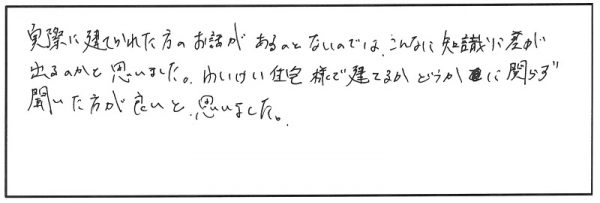 実際に建てられた方のお話があるのとないのでは、こんなに知識に差が
出るのかと思いました。わいけい住宅様で建てるかどうかに関らず
聞いた方が良いと、思いました。